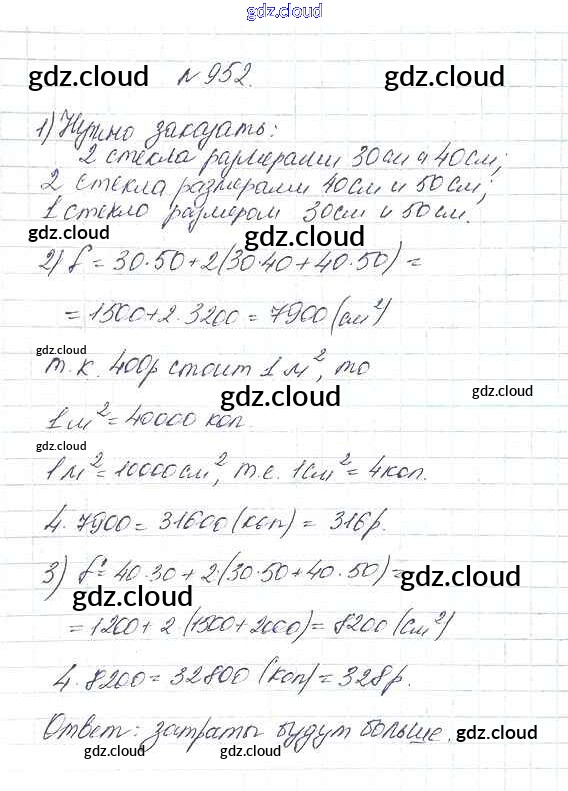 gdz.cloud
gdz.cloud № 952. gdz.cloud
1) Нужно заказать:
2 стекла размерами 30см и 40см;
2 стекла размерами 40см и 50см;
1 стекло размером 30см и 50см.
gdz.cloud gdz.cloud
2) S = 30·50+2(30·40+40·50) =
= 1500+2·3200 = 7900 (см²)
gdz.cloud
т.к. 400р стоит 1 м², то
gdz.cloud gdz.cloud
1м² = 40000 коп.
gdz.cloud
1м² = 10000см², т.е. 1см² = 4коп.
4·7900 = 31600 (коп) = 316р.
3) S = 40·30+2(30·50+40·50) =
gdz.cloud gdz.cloud
= 1200+2·(1500+2000) = 8200 (см²)
4·8200 = 32800 (коп) = 328р.
Ответ: затраты будут больше.
gdz.cloud gdz.cloud gdz.cloud